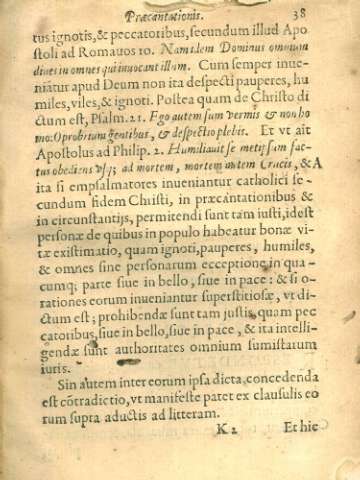 Præcantationis. 38
tus ignotis, & peccatoribus, secundum illud Apo
stoli ad Romanos 10. Nam idem Dominus omnium
diues in omnes qui inuocant illum. Cum semper inue-
niātur apud Deum non ita despecti pauperes, hu
miles, viles, & ignoti. Postea quam de Christo di
ctum est, Psalm. 21. Ego autem sum vermis & non ho
mo: Oprobrium gentibus, & despectio plebis. Et vt ait
Apostolus ad Philip. 2. Humiliauit se metipsum fac-
tus obediens vsq; ad mortem, mortem autem Crucis, & A
ita si empsalmatores inueniantur catholici se-
cundum fidem Christi, in præcantationibus &
in circunstantijs, permitendi sunt tam iusti, idest
personæ de quibus in populo habeatur bonæ vi-
tæ existimatio, quam ignoti, pauperes, humiles,
& omnes sine personarum ecceptione, in qua-
cumq; parte siue in bello, siue in pace: & si o-
rationes eorum inueniantur superstitiosæ, vt di-
ctum est; prohibendæ sunt tam justis, quam pec
catoribus, siue in bello, siue in pace, & ita intelli-
gendæ sunt authoritates omnium sumistarum
iuris.
Sin autem inter eorum ipsa dicta, concedenda
est cōtradictio, vt manifeste patet ex clausulis eo
rum supra aductis ad litteram.
K 2 Et hic